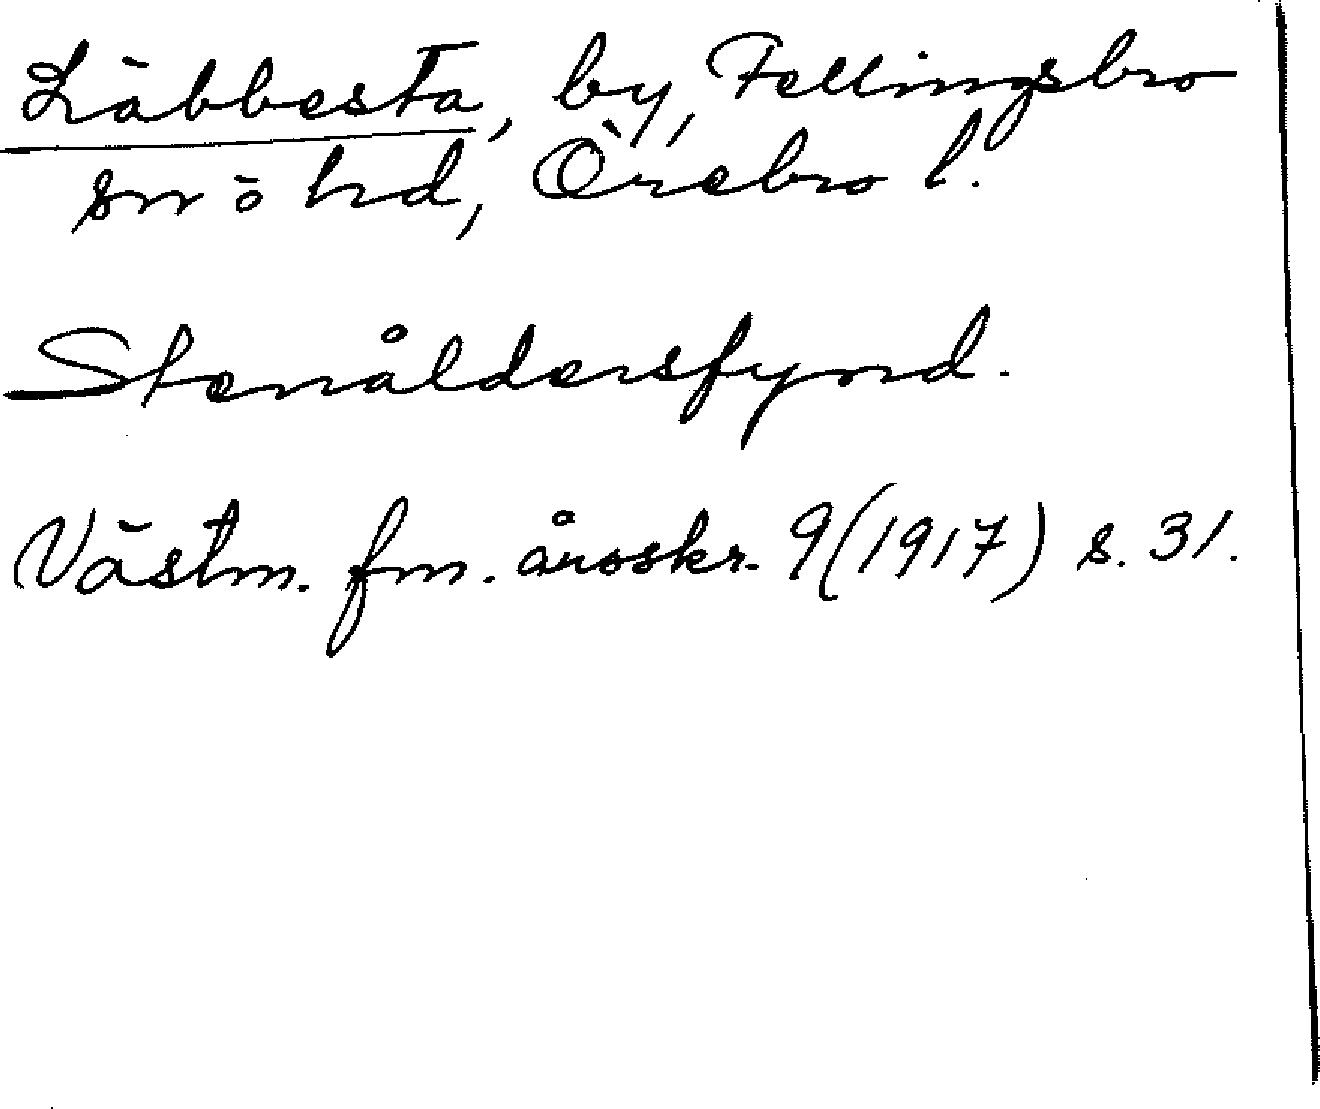 Läbbesta, by, Fellingsbro
sn o hd, Örebro l.
Stenåldersfynd.
Västm. fm. årsskr. 9 (1917) s. 31.